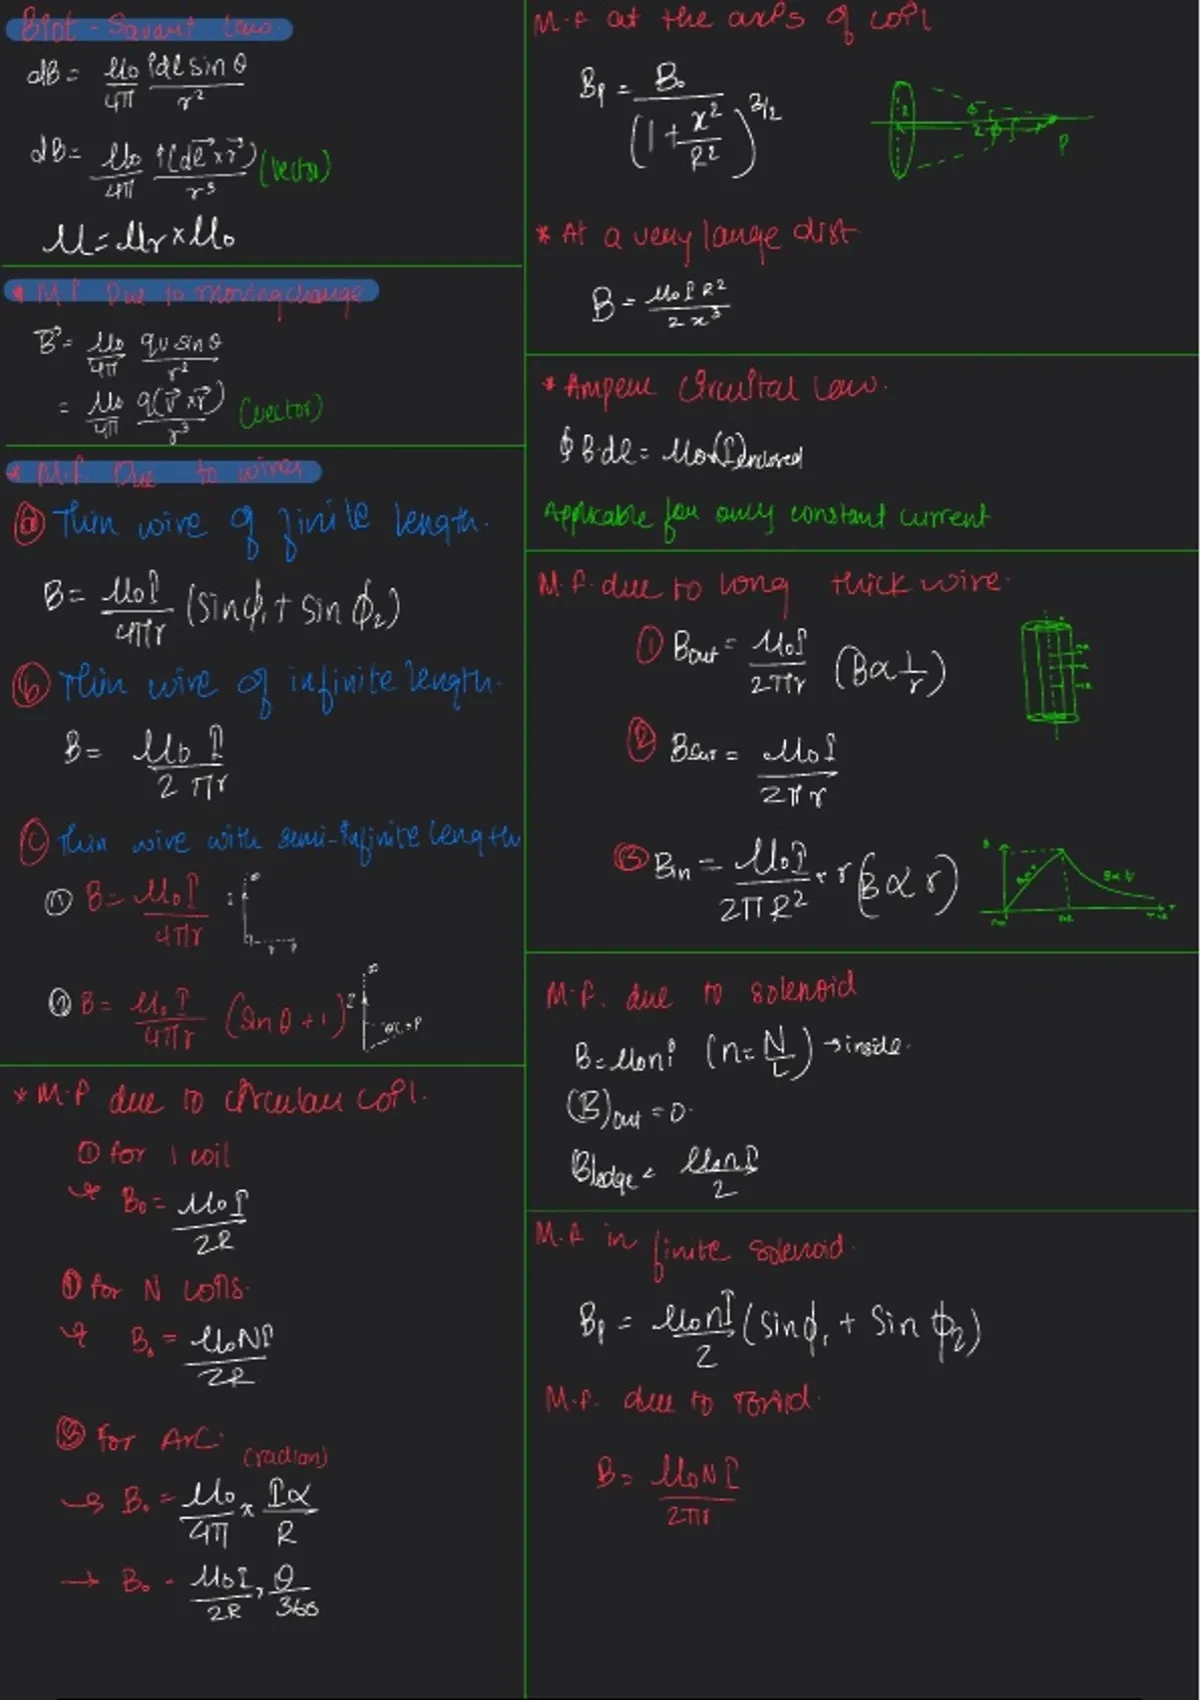 Biot-Savart Law.
dB = μ0/4π idl sin θ/r²
dB = μ0/4π i(dl⃗ × r⃗)/r³ (vector)
μ = μr × μ0
* M.F Due to moving charge
B⃗ = μ0/4π qv sin θ/r²
= μ0/4π q(v⃗ × r⃗)/r³ (vector)
* M.F. Due to wires
(a) Thin wire of finite length.
B = μ0I/4πr (sin ϕ1 + sin ϕ2)
(b) Thin wire of infinite length.
B = μ0 I/2πr
(c) Thin wire with semi-infinite length
① B = μ0I/4πr
∞
r P
② B = μ0I/4πr (sin θ + 1)
∞
P
* M.F due to circular coil.
① for 1 coil
B0 = μ0I/2R
① for N coils.
B0 = μ0NI/2R
③ for Arc. (radian)
→ B0 = μ0/4π × Iα/R
→ B0 = μ0I/2R, θ/360
M.F at the axis of coil
Bp = B0/(1 + x²/R²)^3/2
R P
* At a very large dist
B = μ0IR²/2x³
* Ampere Circuital Law.
∮ B·dl = μ0×(I)enclosed
Applicable for only constant current
M.F. due to long thick wire.
① Bout = μ0I/2πr (B α 1/r)
② Bsur = μ0I/2πr
③ Bin = μ0I/2πR² × r (B α r)
M.F. due to solenoid
B = μ0ni (n = N/L) → inside.
(B)out = 0.
Bledge = μ0nI/2
M.F in finite solenoid.
Bp = μ0nI/2 (sin ϕ1 + sin ϕ2)
M.F. due to toroid.
B = μ0NI/2πr